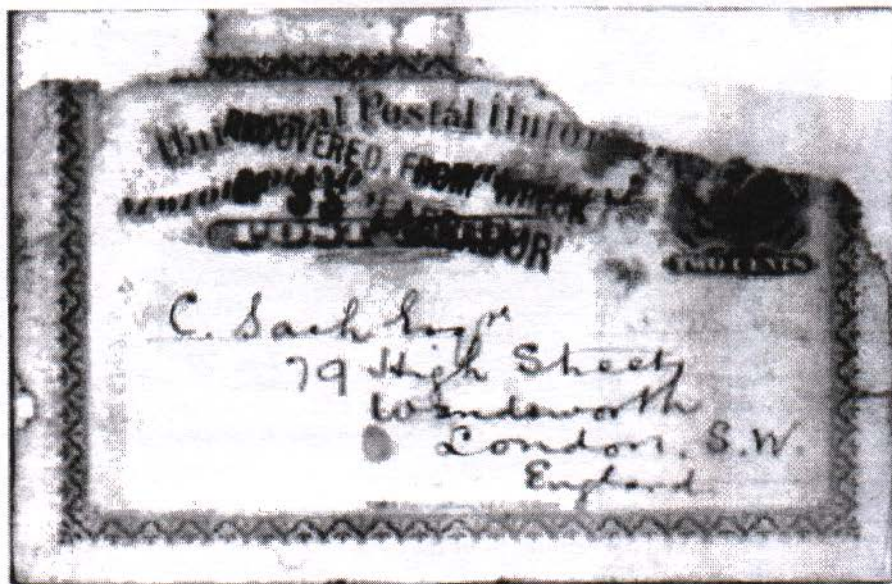 Universal Postal Union
RECOVERED FROM WRECK
NEWFOUNDLAND
SS "LABRADOR"
POST CARD
TWO CENTS
C. Sach Esqre
79 High Street
Wandsworth
London, S.W.
England